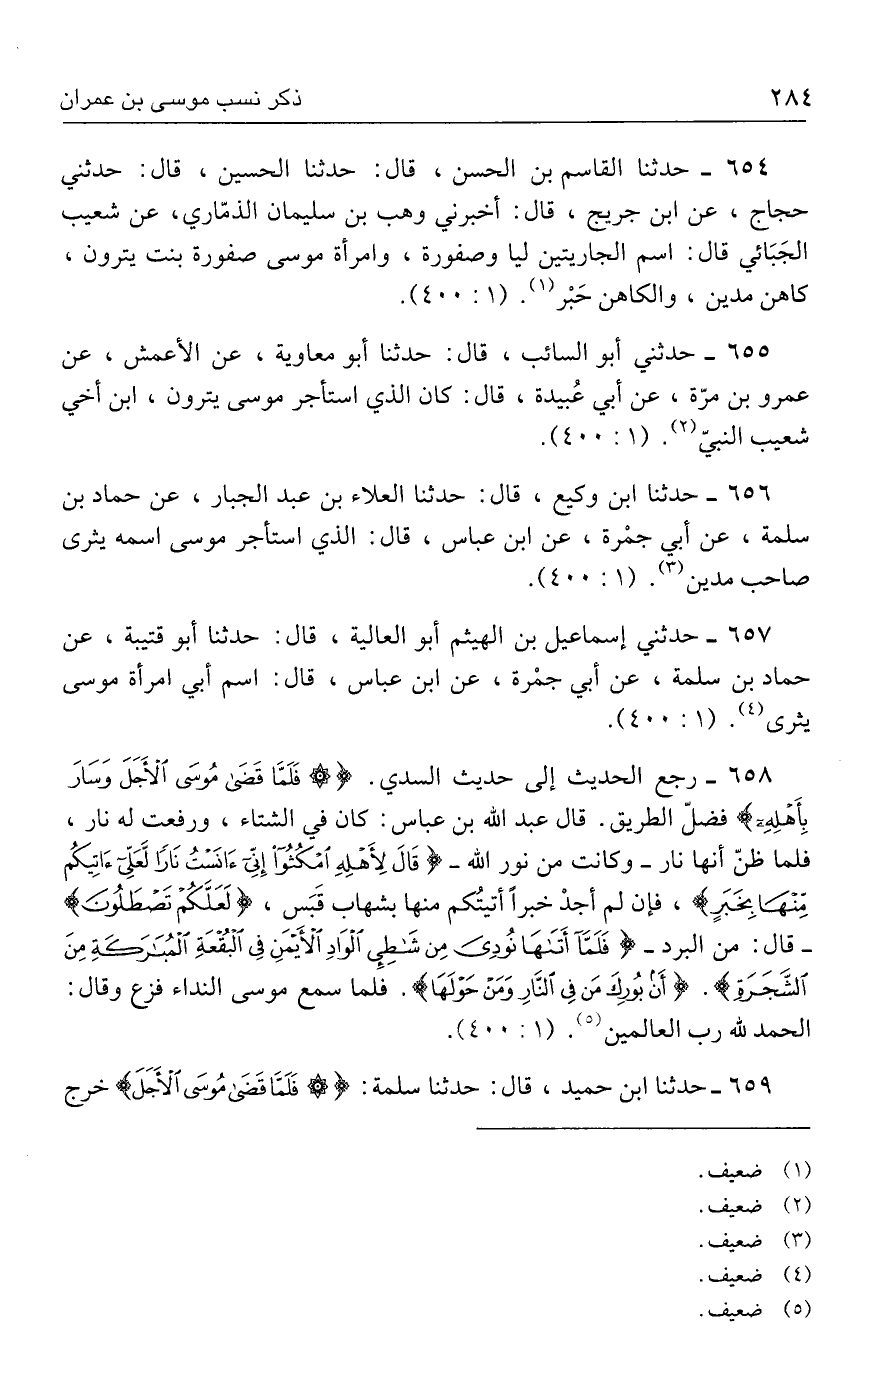 ٢٨٤ ذكر نسب موسى بن عمران
٦٥٤ ـ حدثنا القاسم بن الحسن ، قال: حدثنا الحسين ، قال: حدثني
حجاج ، عن ابن جريج ، قال: أخبرني وهب بن سليمان الذمّاري، عن شعيب
الجَبَائي قال: اسم الجاريتين ليا وصفورة ، وامرأة موسى صفورة بنت يترون ،
كاهن مدين ، والكاهن حَبْر(١). (١ : ٤٠٠).
٦٥٥ ـ حدثني أبو السائب ، قال: حدثنا أبو معاوية ، عن الأعمش ، عن
عمرو بن مرّة ، عن أبي عُبيدة ، قال: كان الذي استأجر موسى يترون ، ابن أخي
شعيب النبيّ(٢). (١ : ٤٠٠).
٦٥٦ ـ حدثنا ابن وكيع ، قال: حدثنا العلاء بن عبد الجبار ، عن حماد بن
سلمة ، عن أبي جمْرة ، عن ابن عباس ، قال: الذي استأجر موسى اسمه يثرى
صاحب مدين(٣). (١ : ٤٠٠).
٦٥٧ ـ حدثني إسماعيل بن الهيثم أبو العالية ، قال: حدثنا أبو قتيبة ، عن
حماد بن سلمة ، عن أبي جمْرة ، عن ابن عباس ، قال: اسم أبي امرأة موسى
يثرى(٤). (١ : ٤٠٠).
٦٥٨ ـ رجع الحديث إلى حديث السدي. ﴿ ۞ فَلَمَّا قَضَىٰ مُوسَى ٱلْأَجَلَ وَسَارَ
بِأَهْلِهِۦٓ﴾ فضلّ الطريق. قال عبد الله بن عباس: كان في الشتاء ، ورفعت له نار ،
فلما ظنّ أنها نار ـ وكانت من نور الله ـ ﴿ قَالَ لِأَهْلِهِ ٱمْكُثُوٓا۟ إِنِّىٓ ءَانَسْتُ نَارًا لَّعَلِّىٓ ءَاتِيكُم
مِّنْهَا بِخَبَرٍ﴾ ، فإن لم أجدْ خبراً أتيتُكم منها بشهاب قَبَس ، ﴿ لَعَلَّكُمْ تَصْطَلُونَ﴾
ـ قال: من البرد ـ ﴿ فَلَمَّآ أَتَىٰهَا نُودِىَ مِن شَٰطِئِ ٱلْوَادِ ٱلْأَيْمَنِ فِى ٱلْبُقْعَةِ ٱلْمُبَٰرَكَةِ مِنَ
ٱلشَّجَرَةِ﴾. ﴿ أَنۢ بُورِكَ مَن فِى ٱلنَّارِ وَمَنْ حَوْلَهَا﴾. فلما سمع موسى النداء فزع وقال:
الحمد لله رب العالمين(٥). (١ : ٤٠٠).
٦٥٩ ـ حدثنا ابن حميد ، قال: حدثنا سلمة: ﴿ ۞ فَلَمَّا قَضَىٰ مُوسَى ٱلْأَجَلَ﴾ خرج
(١) ضعيف.
(٢) ضعيف.
(٣) ضعيف.
(٤) ضعيف.
(٥) ضعيف.